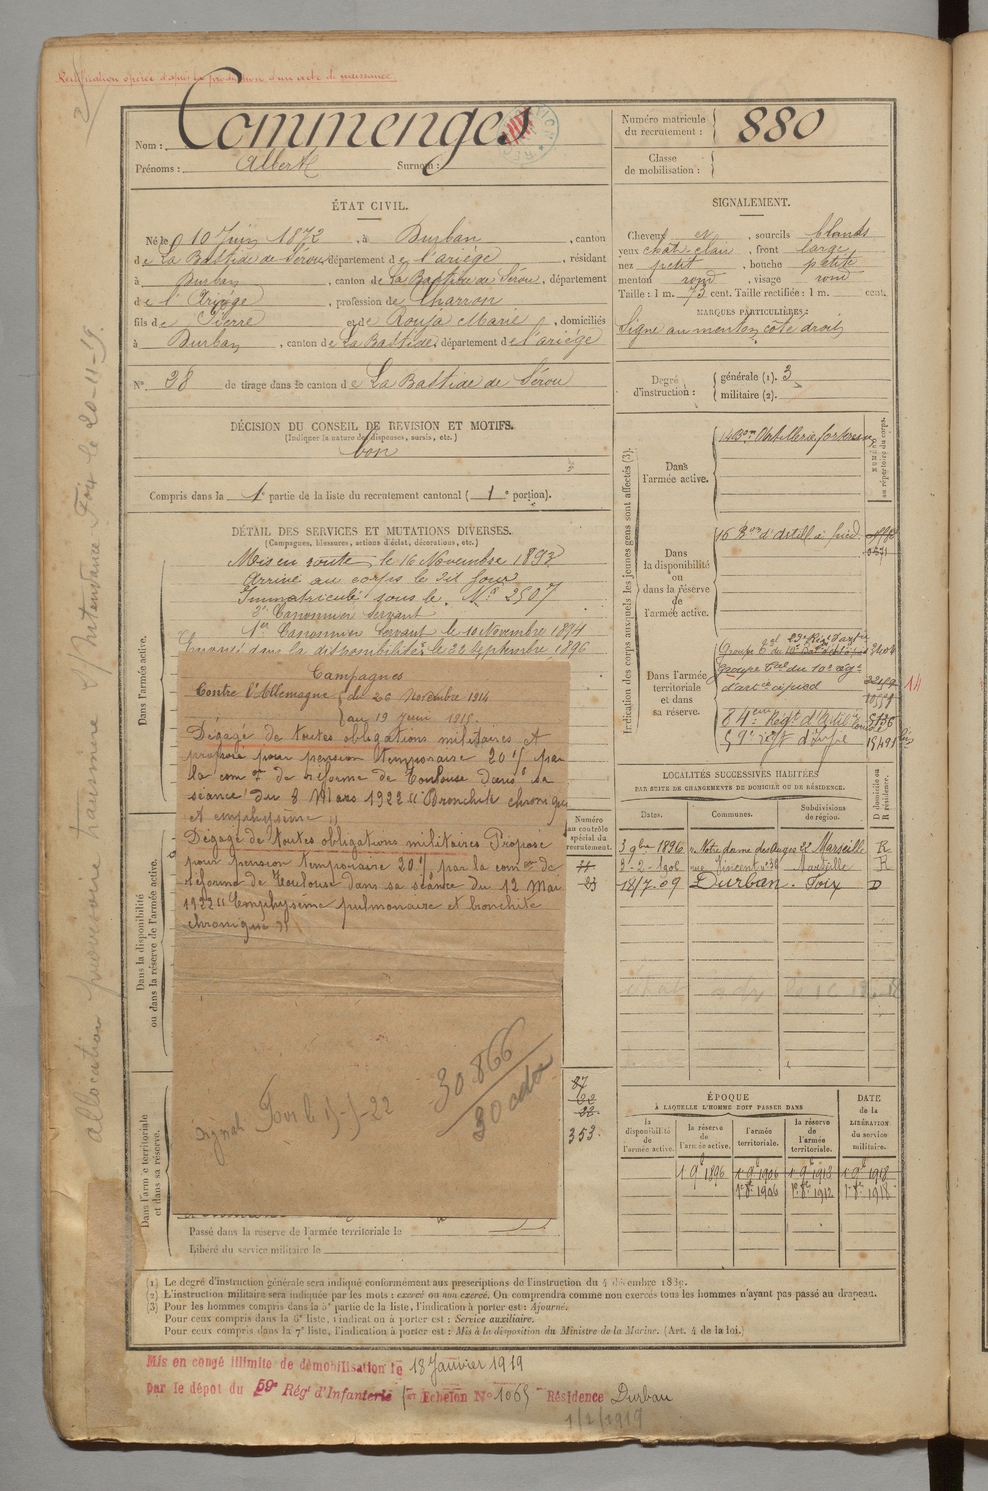 Rectification opérée d'après la production d'un acte de naissance.
Nom : Commenges
Prénoms : Albert Surnom :
Numéro matricule du recrutement : 880
Classe de mobilisation :
ÉTAT CIVIL.
Né le 10 Juin 1872, à Durban, canton
de La Bastide de Sérou, département de l'ariége, résidant
à Durban, canton de La Bastide de Sérou, département
de l'Ariége, profession de Charron
fils de Pierre et de Rouja Marie, domiciliés
à Durban, canton de La Bastide, département de l'ariége
N° 38 de tirage dans le canton de La Bastide de Sérou
SIGNALEMENT.
Cheveux et sourcils blonds
yeux chat. clair, front large
nez petit, bouche petite
menton rond, visage rond
Taille : 1 m. 73 cent. Taille rectifiée : 1 m. cent.
MARQUES PARTICULIÈRES :
Signe au menton côté droit
Degré d'instruction : générale (1). 3
militaire (2).
DÉCISION DU CONSEIL DE REVISION ET MOTIFS.
(Indiquer la nature des dispenses, sursis, etc.)
bon
Compris dans la 1e partie de la liste du recrutement cantonal (1e portion).
DÉTAIL DES SERVICES ET MUTATIONS DIVERSES.
(Campagnes, blessures, actions d'éclat, décorations, etc.)
Dans l'armée active.
Mis en route le 16 Novembre 1893
Arrivé au corps le dit jour
Immatriculé sous le N° 2507
2e Canonnier Servant
1er Canonnier Servant le 10 Novembre 1894
Envoyé dans la disponibilité le 22 Septembre 1896
Campagnes
Contre l'Allemagne du 26 Novembre 1914
au 19 Juin 1915.
Dégagé de toutes obligations militaires et
proposé pour pension temporaire 20 % par
la comon de réforme de Toulouse dans sa
séance du 8 Mars 1922 "Bronchite chronique
et emphysème"
Dégagé de toutes obligations militaires Proposé
pour pension temporaire 20 % par la comon de
réforme de Toulouse dans sa séance du 12 Mai
1922 "Emphysème pulmonaire et bronchite
chronique"
30.866
Dans la disponibilité ou dans la réserve de l'armée active.
Dans l'armée territoriale et dans sa réserve.
Numéro au contrôle spécial du recrutement.
353.
Passé dans la réserve de l'armée territoriale le
Libéré du service militaire le
Indication des corps auxquels les jeunes gens sont affectés (3).
NUMÉRO au répertoire du corps.
Dans l'armée active.
14e Bon Artillerie forteresse
Dans la disponibilité ou dans la réserve de l'armée active.
16 Bon d'artill à pied
Dans l'armée territoriale et dans sa réserve.
Groupe tal du 10e Régt
d'artie à pied
14
LOCALITÉS SUCCESSIVES HABITÉES
PAR SUITE DE CHANGEMENTS DE DOMICILE OU DE RÉSIDENCE.
Dates. Communes. Subdivisions de région. D domicile ou R résidence.
3 9bre 1896 r. Notre dame des anges 22 Marseille R
3-2-1906 rue Vincent n° 38 Marseille R
18/7-09 Durban. Foix D
ÉPOQUE
À LAQUELLE L'HOMME DOIT PASSER DANS
la disponibilité de l'armée active. la réserve de l'armée active. l'armée territoriale. la réserve de l'armée territoriale. DATE de la LIBÉRATION du service militaire.
1 9e 1896 1 9e 1906 1 9e 1912 1 9e 1918
1er 8e 1906 1er 8e 1912 1er 8e 1918
(1) Le degré d'instruction générale sera indiqué conformément aux prescriptions de l'instruction du 4 décembre 1889.
(2) L'instruction militaire sera indiquée par les mots : exercé ou non exercé. On comprendra comme non exercés tous les hommes n'ayant pas passé au drapeau.
(3) Pour les hommes compris dans la 5e partie de la liste, l'indication à porter est : Ajourné.
Pour ceux compris dans la 6e liste, l'indication à porter est : Service auxiliaire.
Pour ceux compris dans la 7e liste, l'indication à porter est : Mis à la disposition du Ministre de la Marine. (Art. 4 de la loi.)
Mis en congé illimité de démobilisation le 18 Janvier 1919
par le dépôt du 59e Régt d'Infanterie Echelon N° 1065 Résidence Durban
1/2/1919
allocation provisoire transmise s/Intendance Foix le 20-11-19.